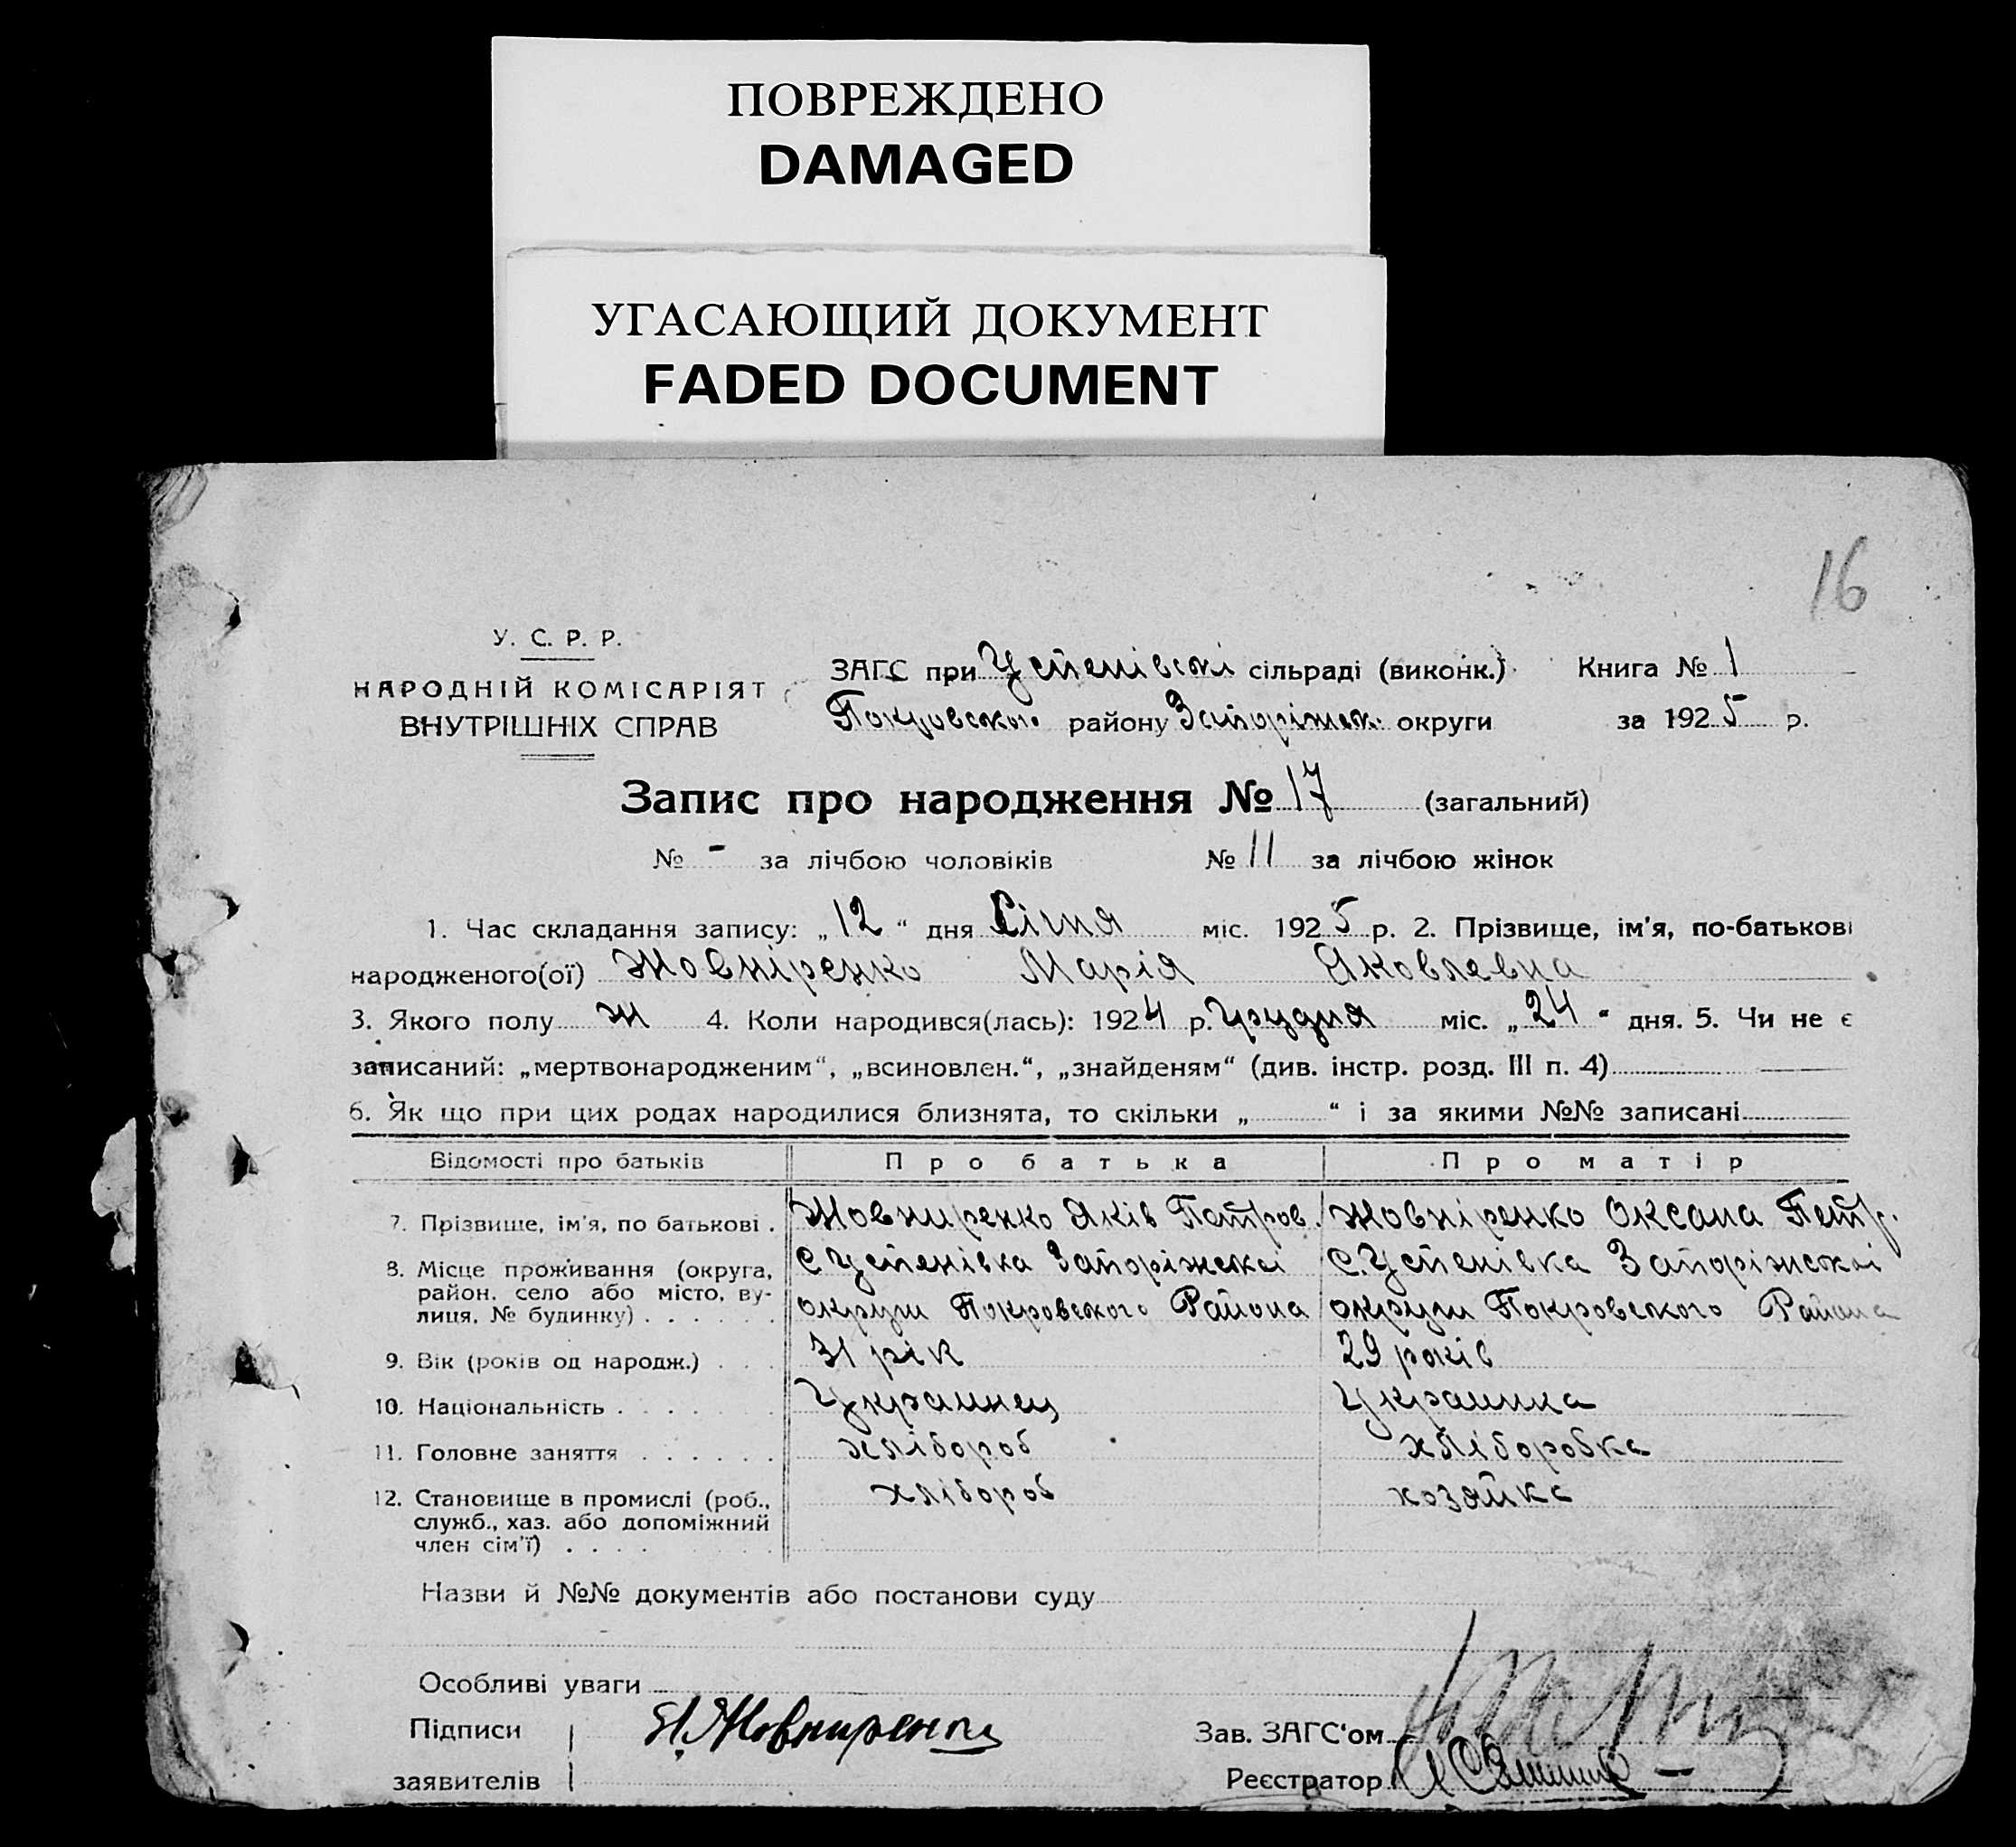 ПОВРЕЖДЕНО
DAMAGED
УГАСАЮЩИЙ ДОКУМЕНТ
FADED DOCUMENT
16
У. С. Р. Р.
НАРОДНІЙ КОМІСАРІЯТ
ВНУТРІШНІХ СПРАВ
ЗАГС при Успенівскі сільраді (виконк.) Книга № 1
Покровского району Запоріжск. округи за 1925 р.
Запис про народження № 17 (загальний)
№ - за лічбою чоловіків № 11 за лічбою жінок
1. Час складання запису: „12“ дня Січня міс. 1925 р. 2. Прізвище, ім'я, по-батькові
народженого(ої) Жовніренко Марія Яковлевна
3. Якого полу ж 4. Коли народився(лась): 1924 р. Грудня міс. „24“ дня. 5. Чи не є
записаний: „мертвонародженим“, „всиновлен.“, „знайденям“ (див. інстр. розд. III п. 4)
6. Як що при цих родах народилися близнята, то скільки „ “ і за якими №№ записані
Відомості про батьків Про батька Про матір
7. Прізвище, ім'я, по батькові . Жовниренко Яків Петров. Жовніренко Оксана Петр.
8. Місце проживання (округа, район, село або місто, вулиця, № будинку) . . . . . .
С Успенівка Запоріжскоі С. Успенівка Запоріжскоі
округи Покровского Района округи Покровского Района
9. Вік (років од народж.) . . . 31 рік 29 років
10. Національність . . . . . . Украинец Украинка
11. Головне заняття . . . . . . хлібороб хліборобка
12. Становище в промислі (роб., хлібороб хозяйка
служб., хаз. або допоміжний
член сім'ї) . . . .
Назви й №№ документів або постанови суду
Особливі уваги
Підписи Я. Жовниренко Зав. ЗАГС'ом
заявителів Реєстратор